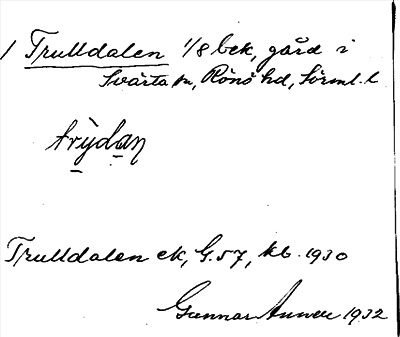 1 Trulldalen 1/8 bek, gård i
Svärta sn, Rönö hd, Sörml. l
trỳdan
Trulldalen ek, G.57, kb. 1930
Gunnar 1932